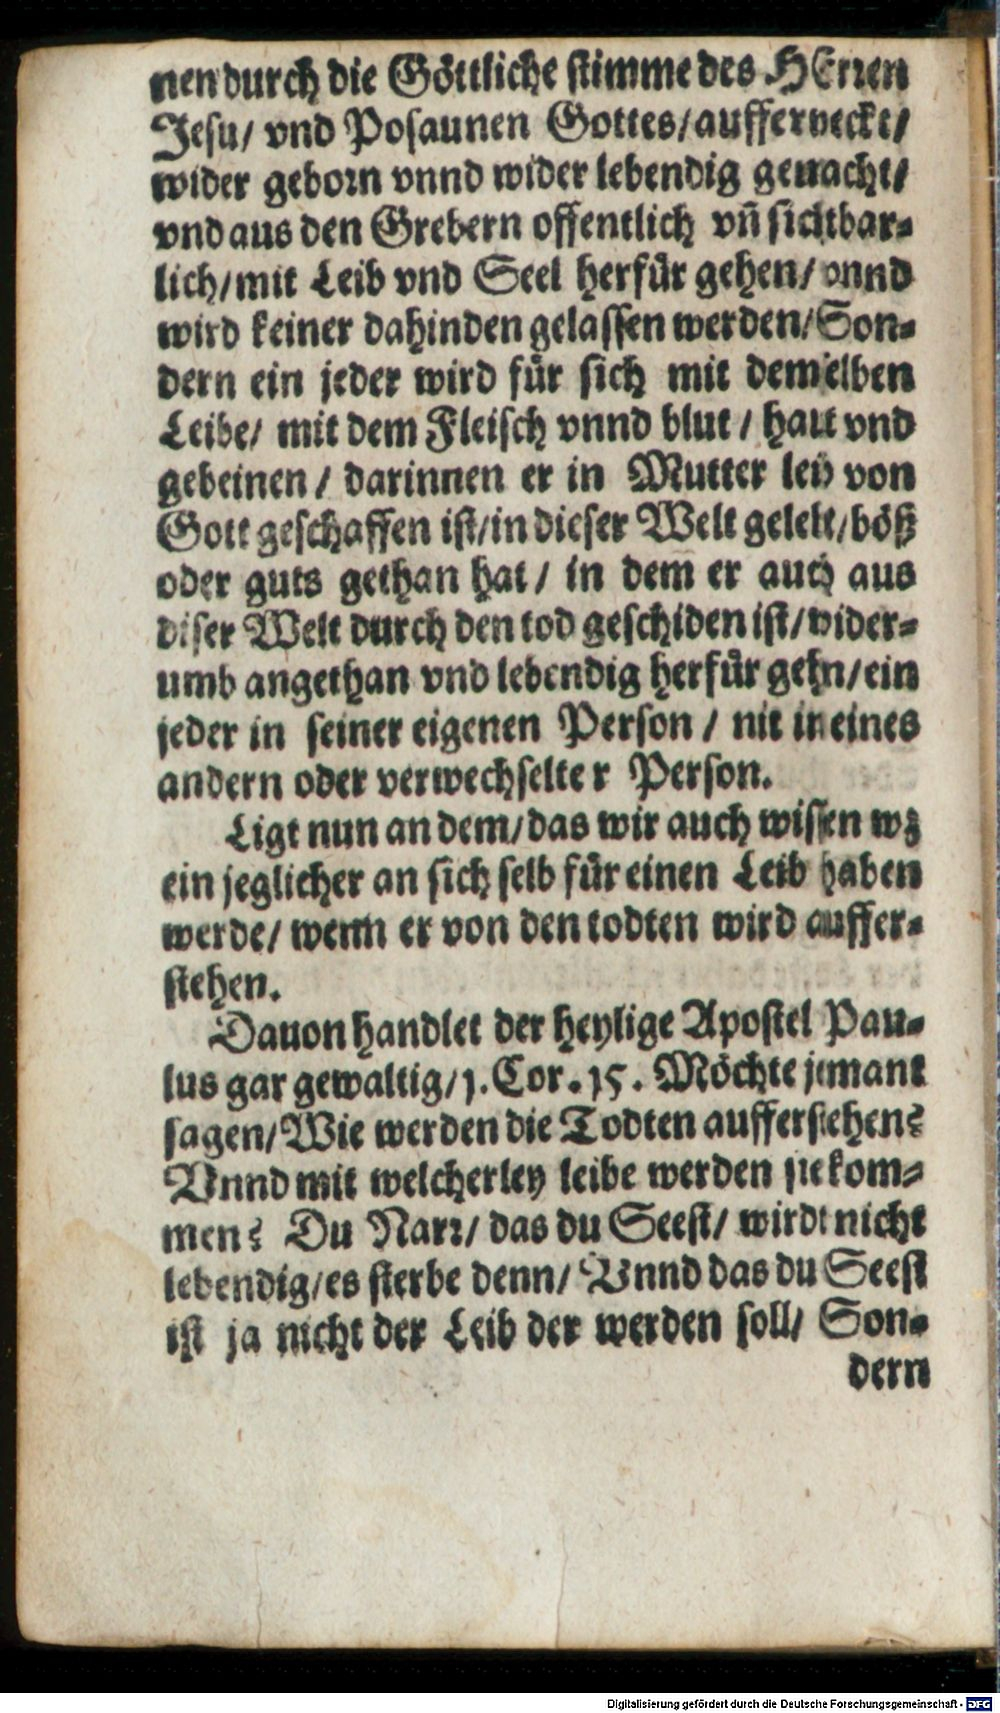 nen durch die Göttliche stimme des HErren
Jesu/ vnd Posaunen Gottes/ aufferweckt/
wider geborn vnnd wider lebendig gemacht/
vnd aus den Grebern offentlich vñ sichtbar-
lich/ mit Leib vnd Seel herfür gehen/ vnnd
wird keiner dahinden gelassen werden/ Son-
dern ein jeder wird für sich mit demselben
Leibe/ mit dem Fleisch vnnd blut/ haut vnd
gebeinen/ darinnen er in Mutter leib von
Gott geschaffen ist/ in dieser Welt gelebt/ böß
oder guts gethan hat/ in dem er auch aus
diser Welt durch den tod geschiden ist/ wider-
umb angethan vnd lebendig herfür gehn/ ein
jeder in seiner eigenen Person/ nit in eines
andern oder verwechselter Person.
Ligt nun an dem/ das wir auch wissen wz
ein jeglicher an sich selb für einen Leib haben
werde/ wenn er von den todten wird auffer-
stehen.
Dauon handlet der heylige Apostel Pau-
lus gar gewaltig/ 1. Cor. 15. Möchte jemant
sagen/ Wie werden die Todten aufferstehen?
Vnnd mit welcherley leibe werden sie kom-
men? Du Narr/ das du Seest/ wirdt nicht
lebendig/ es sterbe denn/ Vnnd das du Seest
ist ja nicht der Leib der werden soll/ Son-
dern
Digitalisierung gefördert durch die Deutsche Forschungsgemeinschaft - DFG